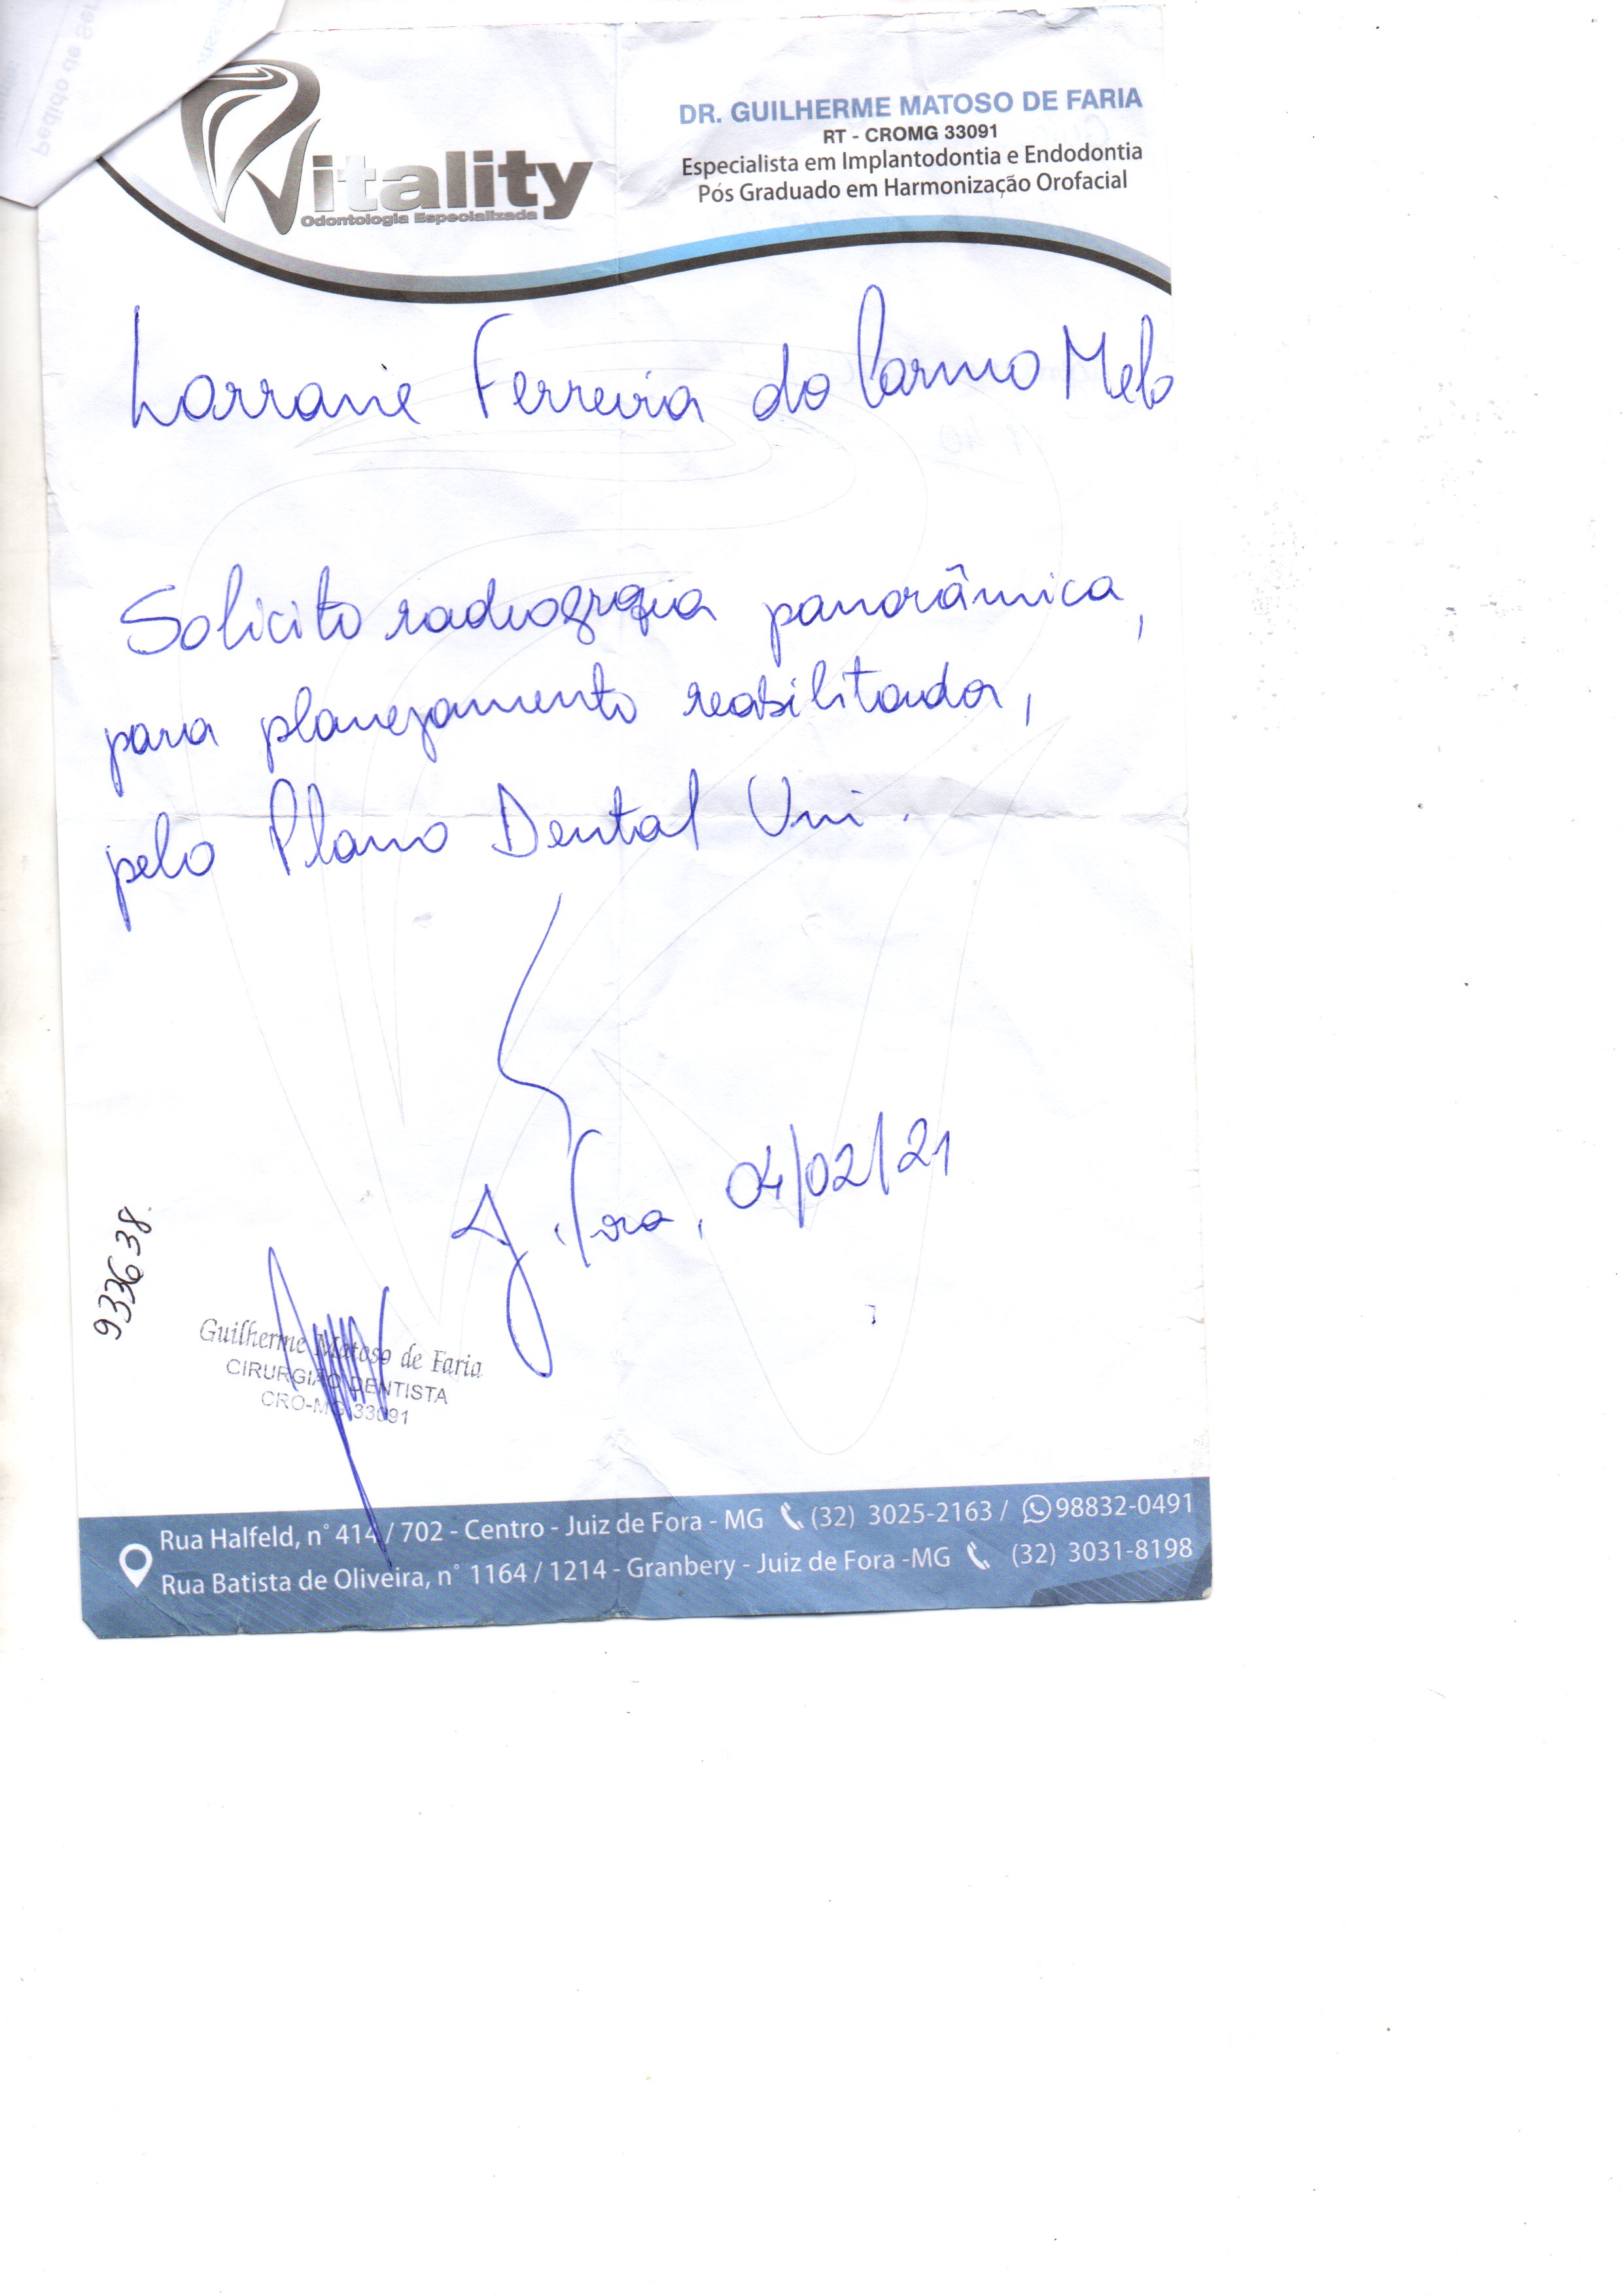 Vitality
Odontologia Especializada
DR. GUILHERME MATOSO DE FARIA
RT - CROMG 33091
Especialista em Implantodontia e Endodontia
Pós Graduado em Harmonização Orofacial
Lorranie Ferreira do Carmo Melo
Solicito radiografia panorâmica,
para planejamento reabilitador,
pelo Plano Dental Uni.
J. Fora, 04/02/21
933638.
Guilherme Matoso de Faria
CIRURGIÃO DENTISTA
CRO-MG 33091
Rua Halfeld, n° 414 / 702 - Centro - Juiz de Fora - MG (32) 3025-2163 / 98832-0491
Rua Batista de Oliveira, n° 1164 / 1214 - Granbery - Juiz de Fora -MG (32) 3031-8198